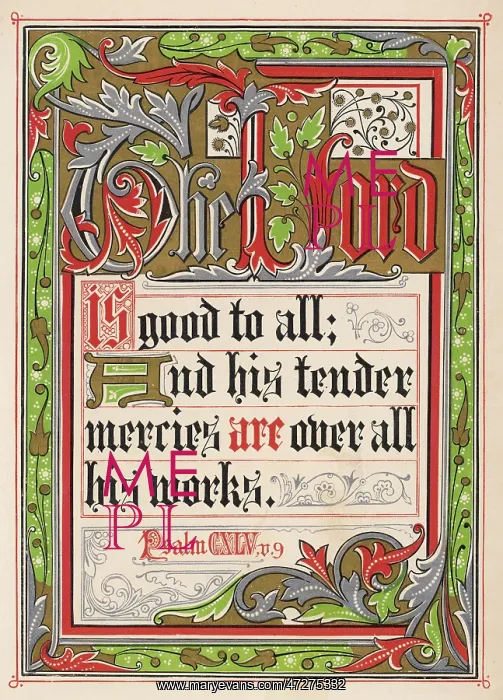 The Lord
is good to all;
And his tender
mercies are over all
his works.
Psalm CXLV. v. 9
ME
PL
ME
PL
www.maryevans.com/47275392